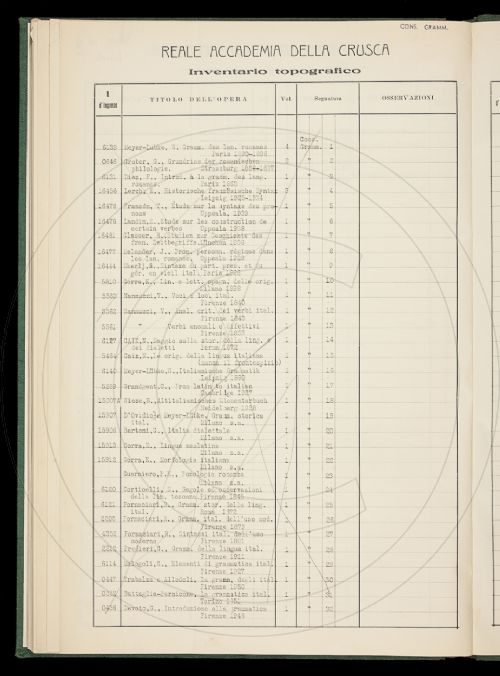 CONS. GRAMM.
REALE ACCADEMIA DELLA CRUSCA
Inventario topografico
N. d'ingresso TITOLO DELL'OPERA Vol. Segnatura OSSERVAZIONI
Cons.
6133 Meyer-Lübke, W. Gramm. des lan. romanes 4 Gramm. 1
Paris 1890-1906
Gröber, G., Grundriss der romanischen 2 " 2
philologie. Strassburg
6131 Diez, F., Introd. à la gramm. des lang. 1 " 3
romanes. Paris 1863
16456 Lerch, E., Historische Französische Syntax 3 " 4
Leipzig 1925-1934
16478 Etude sur la syntaxe des pro- 1 " 5
noms Uppsala, 1939
16476 Etude sur les construction de 1 " 6
certain verbes Uppsala 1938
16481 Studien zur Geschichte des 1 " 7
fran. München 1936
16477 Melander, J., Pron. personn. régime dans 1 " 8
les lan. romanes, Uppsala
Syntaxe du part. pres. et du 1 " 9
gér. en vieil ital. Paris
5810 Gorra, E., Lin. e lett. spagn. delle orig. 1 " 10
Milano 1898
Nannucci, V., Voci e loci ital. 1 " 11
Firenze 1840
Nannucci, V., Anal. crit. dei verbi ital. 1 " 12
Firenze 1843
" Verbi anomali e difettivi 1 " 13
Firenze 1853
6127 CAIX, N., Saggio sulla stor. della ling. e 1 " 14
dei dialetti Parma 1872
Caix, N., Le orig. della lingua italiana 1 " 15
(manca il frontespizio)
6140 Meyer-Lübke, W., Italienische Grammatik 1 " 16
Leipzig 1890
Grandgent, C., From latin to italian 1 " 17
Cambridge 1927
Wiese, B., Altitalienisches Elementarbuch 1 " 18
Heidelberg 1928
D'Ovidio e Meyer-Lübke, Gramm. storica 1 " 19
ital. Milano s.a.
15908 Bertoni, G., Italia dialettale 1 " 20
Milano s.a.
15913 Gorra, E., Lingue neolatine 1 " 21
Milano s.a.
15912 Gorra, E., Morfologia italiana 1 " 22
Milano s.a.
Guarnerio, P.E., Fonologia romanza 1 " 23
Milano s.a.
6120 Corticelli, S., Regole ed osservazioni 1 " 24
della lin. toscana. Firenze
6121 Fornaciari, R., Gramm. stor. della ling. 1 " 25
ital. Roma 1872
Fornaciari, R., Gramm. ital. dell'uso mod. 1 " 26
Firenze 1879
Fornaciari, R., Sintassi ital. dell'uso 1 " 27
moderno Firenze 1881
Gramm. della lingua ital. 1 " 28
Firenze 1911
6114 Malagoli, G., Elementi di grammatica ital. 1 " 29
Firenze 1927
Trabalza e Allodoli, La gramm. degli ital. 1 " 30
Firenze
Battaglia-Pernicone, La grammatica ital. 1 " 31
Torino 1951
Devoto, G., Introduzione alla grammatica 1 " 32
Firenze